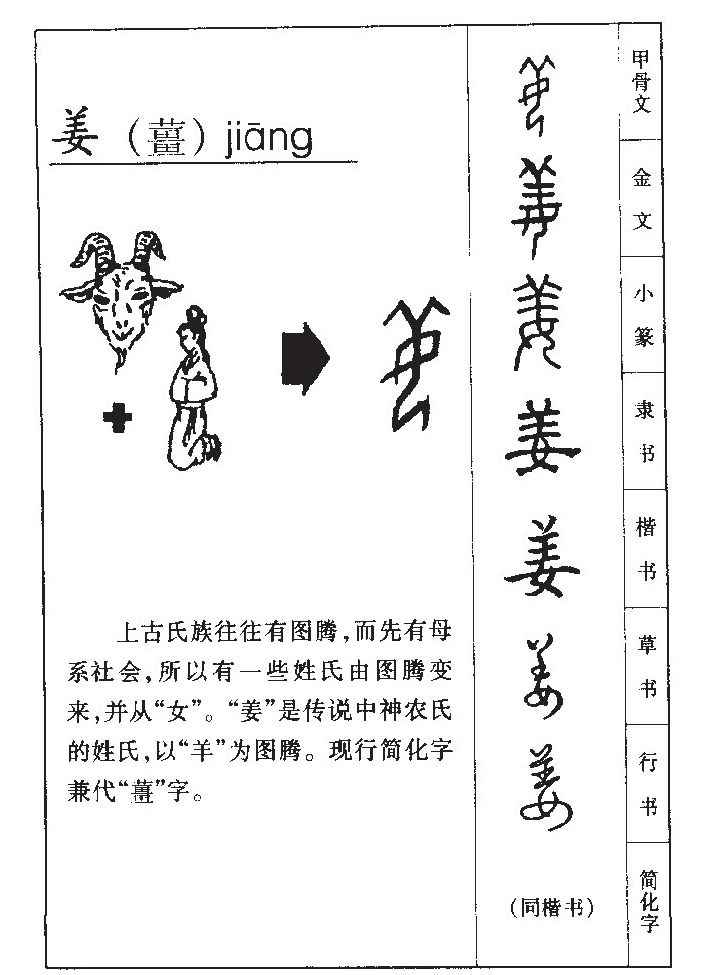 姜（薑）jiāng
上古氏族往往有图腾，而先有母
系社会，所以有一些姓氏由图腾变
来，并从“女”。“姜”是传说中神农氏
的姓氏，以“羊”为图腾。现行简化字
兼代“薑”字。
甲骨文
姜
金文
姜
小篆
姜
隶书
姜
楷书
姜
草书
姜
行书
（同楷书）
简化字